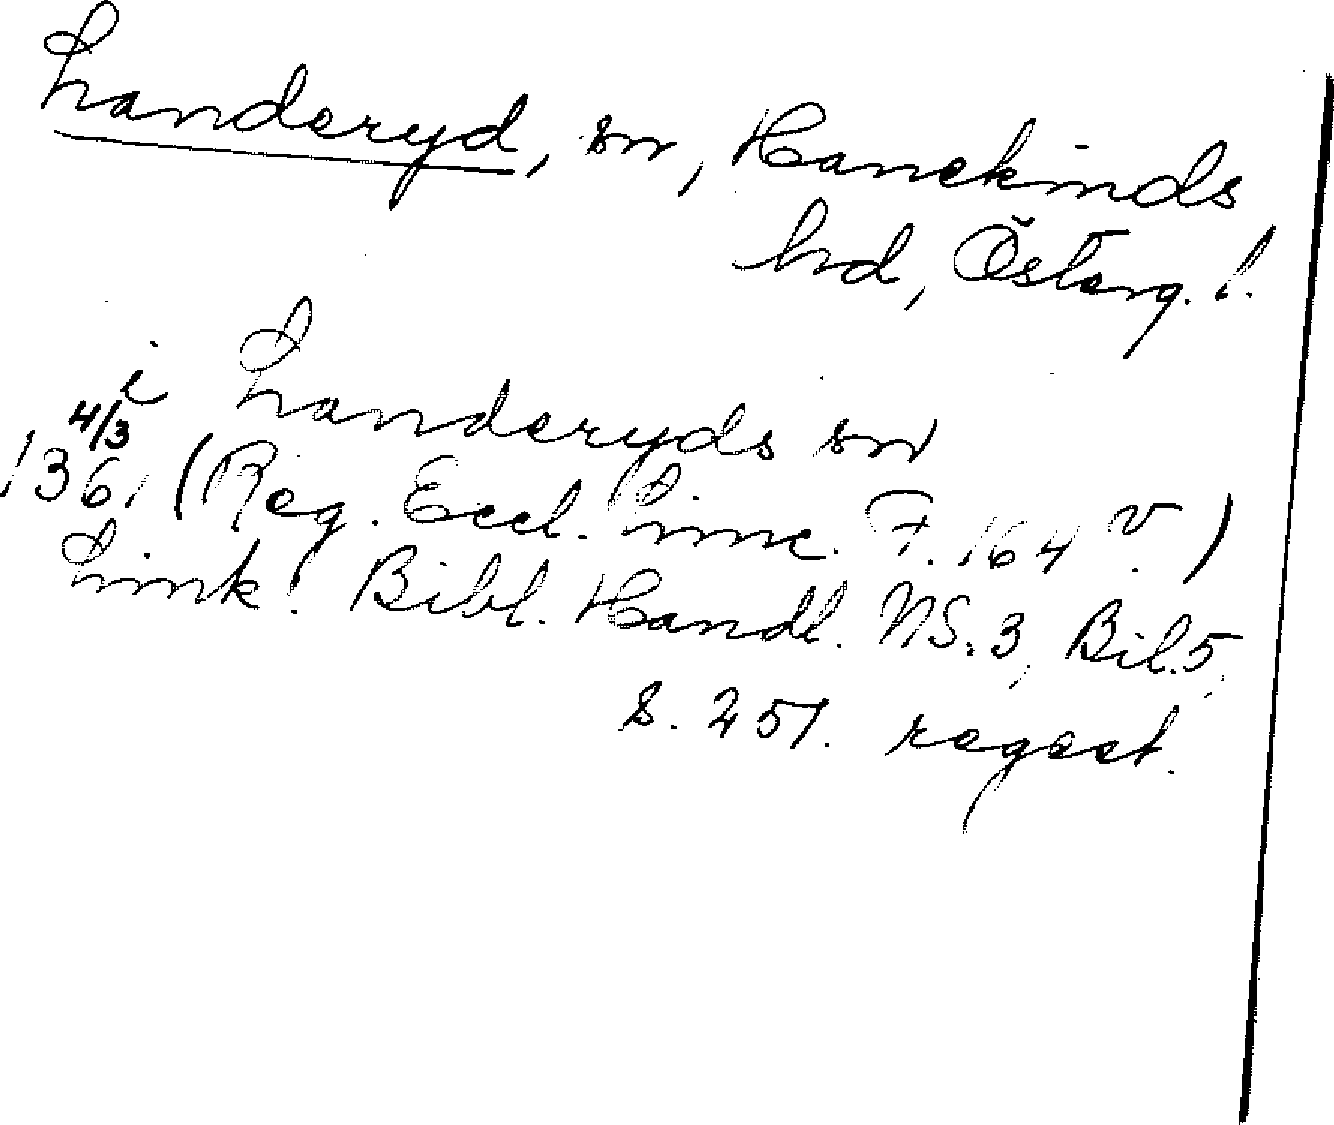 Landeryd, sn, Hanekinds
hd, Österg. l.
i Landeryds sn
4/3
1361 (Reg. Eccl. Linc. F. 164 v.)
Link. Bibl. Handl. NS. 3, Bil. 5,
s. 251. regest.